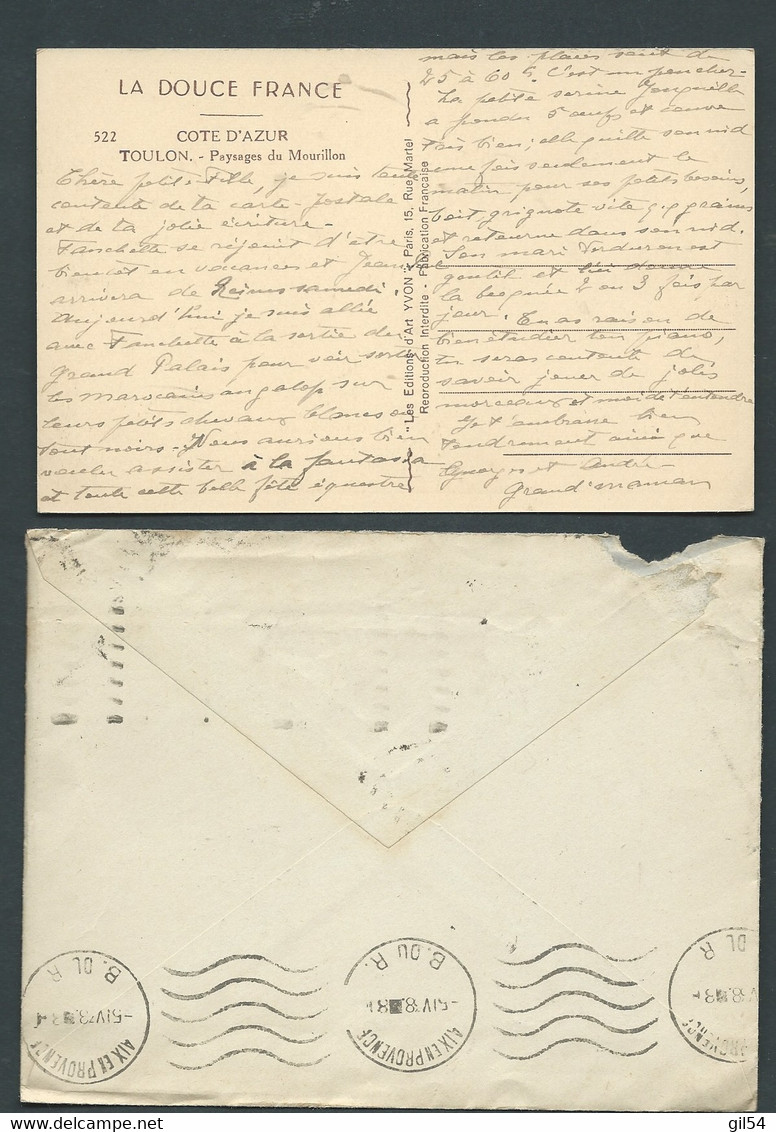 LA DOUCE FRANCE
522 COTE D'AZUR
TOULON. - Paysages du Mourillon
Chère petite fille, je suis toute
contente de ta carte-postale
et de ta jolie écriture -
Fanchette se réjouit d'être
bientôt en vacances et Jean
arrivera de Reims samedi.
Aujourd'hui je suis allée
avec Fanchette à la sortie du
Grand Palais pour voir sortir
les marocains au galop sur
leurs petits chevaux blancs ou
tout noirs - Nous aurions bien
voulu assister à la fantasia
et toute cette belle fête équestre
mais les places sont de
25 à 60 f. C'est un peu cher -
La petite serine Jonquille
a pondu 5 œufs et couve
très bien; elle quitte son nid
une fois seulement le
matin pour ses petits besoins,
boit grignote vite q.q graines
et retourne dans son nid.
Son mari Verduron est
gentil et lui donne
la becquée 2 ou 3 fois par
jour. Tu as raison de
bien étudier ton piano,
tu seras contente de
savoir jouer de jolis
morceaux et moi de t'entendre
Je t'embrasse bien
tendrement ainsi que
Georges et André
Grand'maman
"Les Editions d'Art YVON" - Paris, 15, Rue Martel
Reproduction Interdite - Fabrication Française
AIX EN PROVENCE
B. DU R.
-5 IV 38
AIX EN PROVENCE
B. DU R.
-5 IV 38
PROVENCE
DU R
gil54